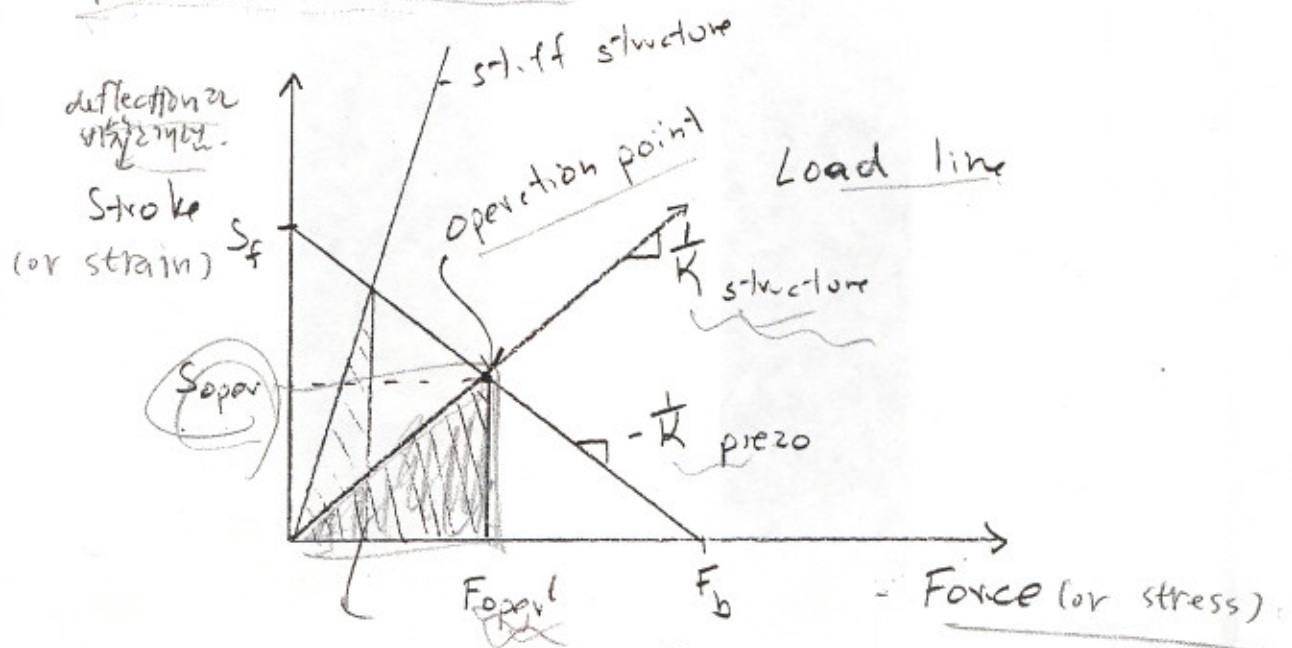 stiff structure
deflection과
비슷한개념.
Stroke
(or strain)
Sf
operation point
Load line
1/K structure
Soper
-1/K piezo
Foper'
Fb
Force (or stress)